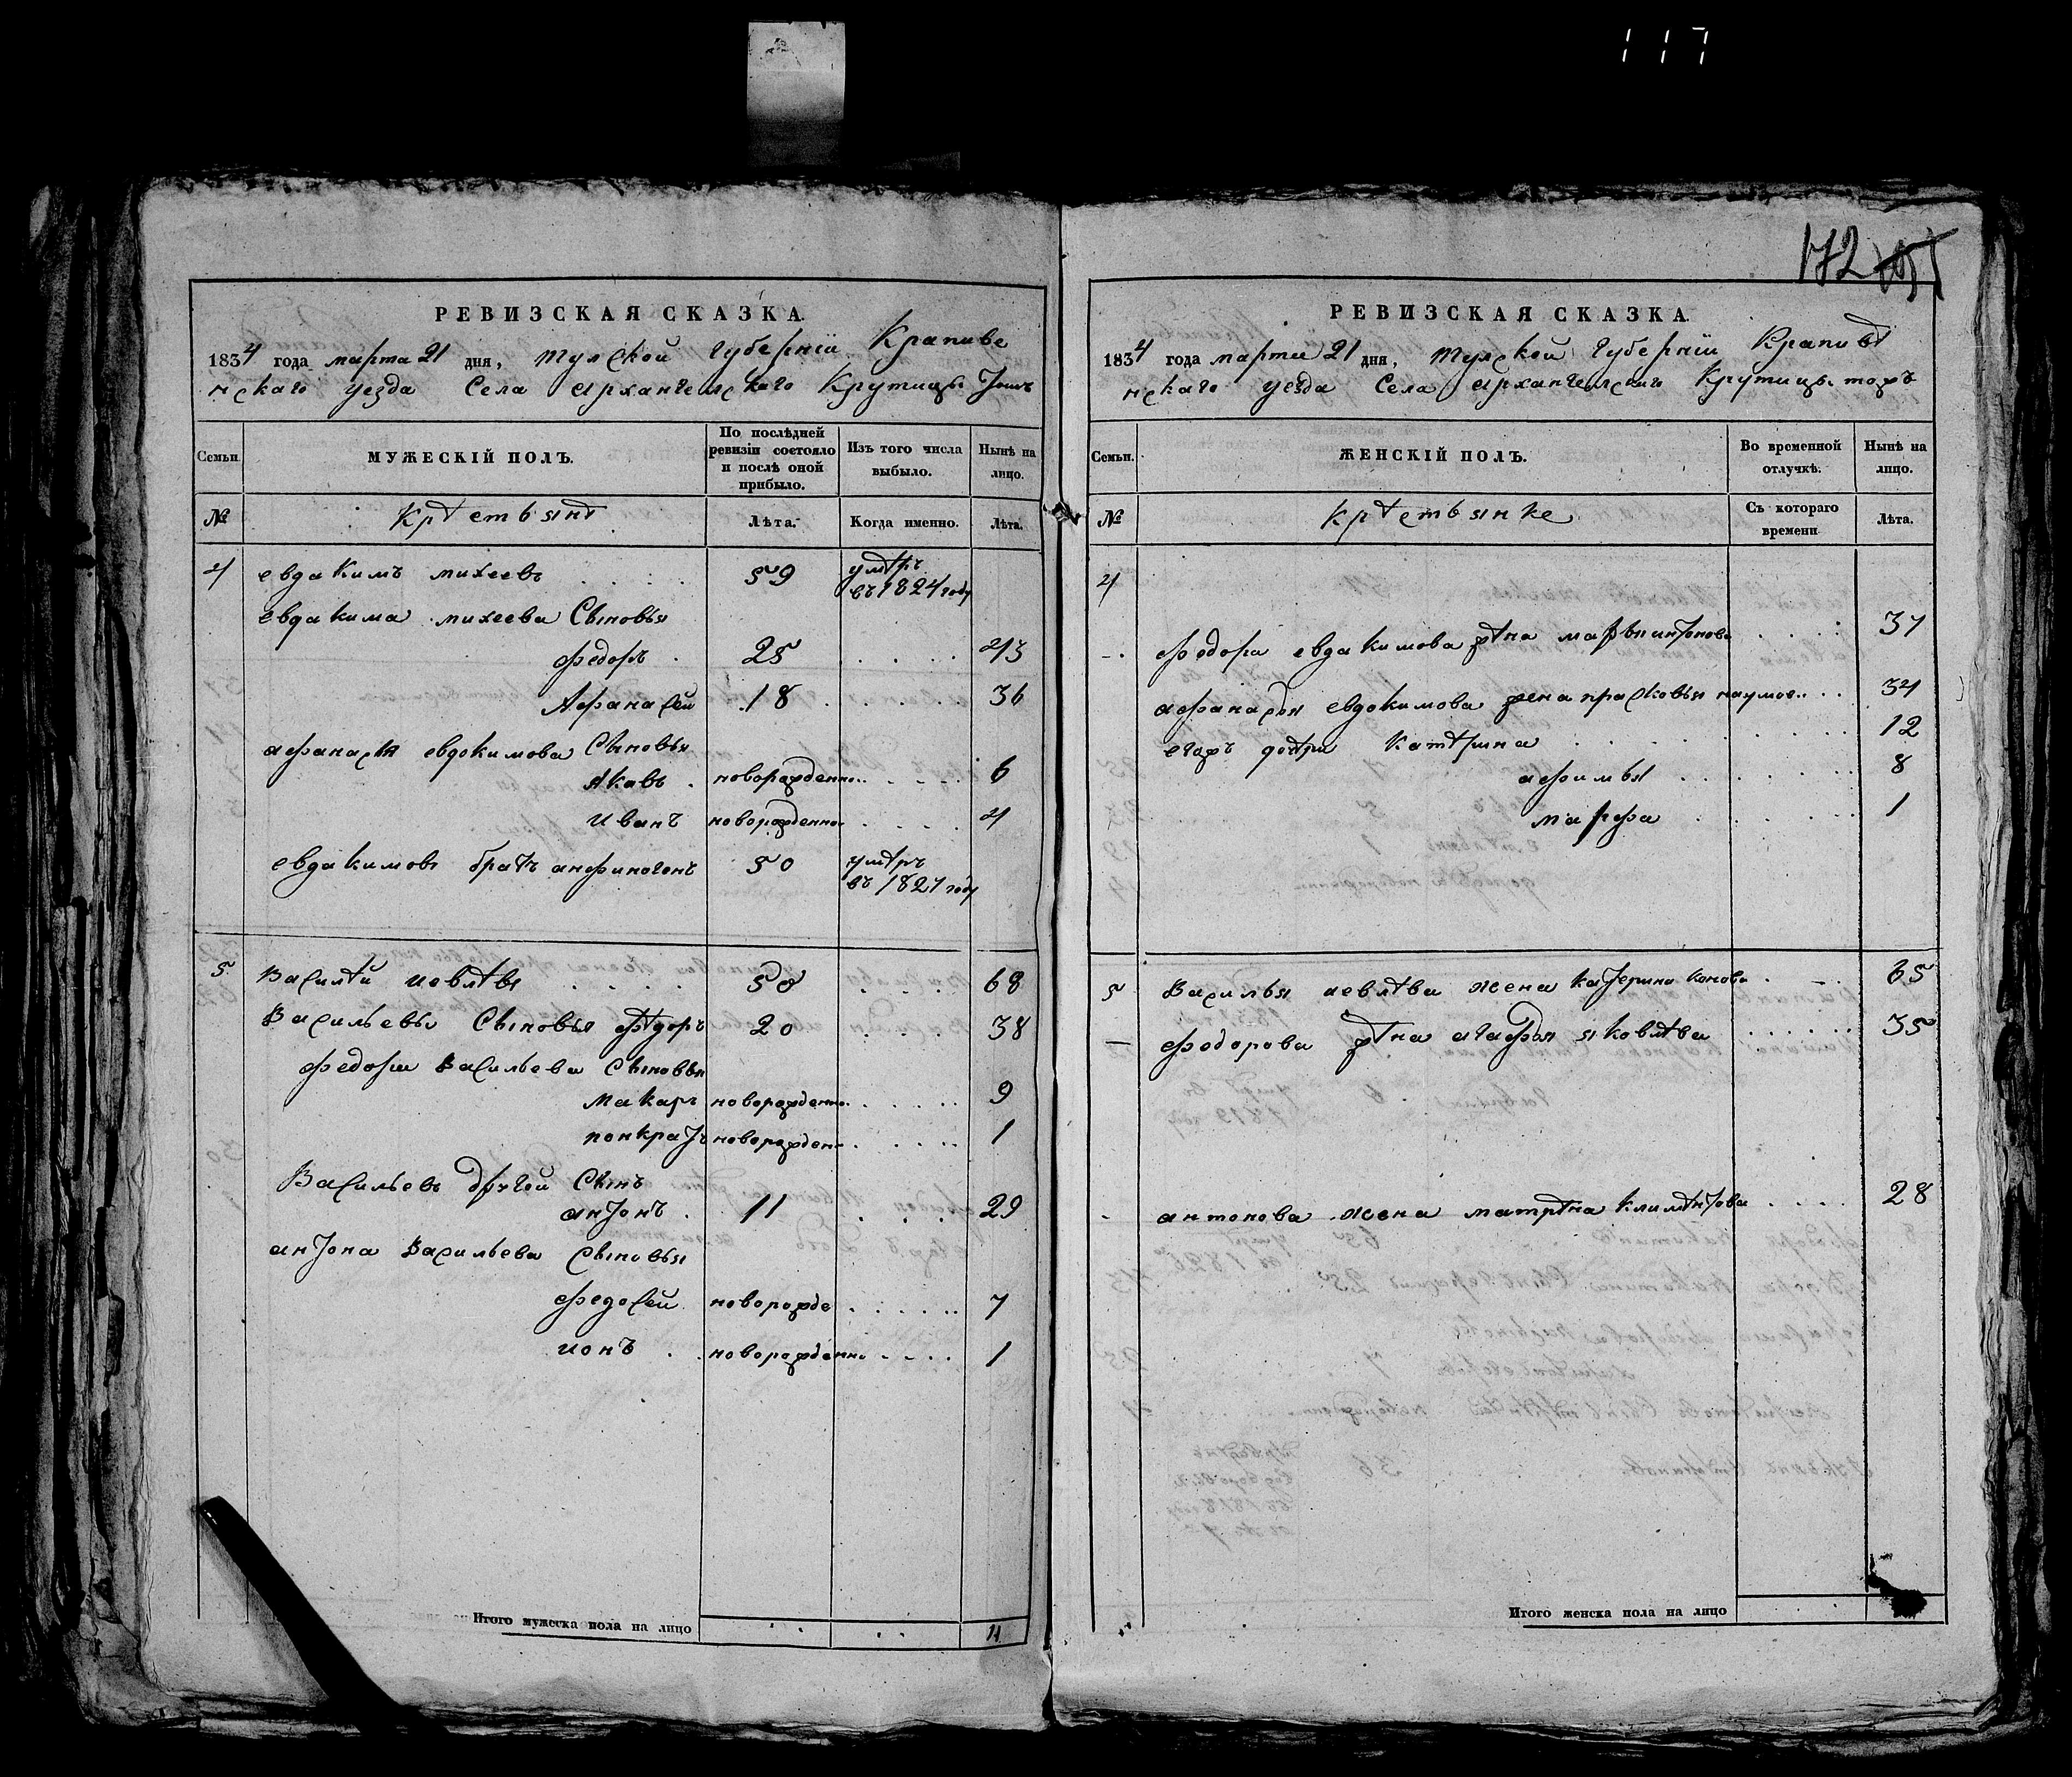 117
172
РЕВИЗСКАЯ СКАЗКА.
1834 года марта 21 дня, Тулской Губернiи Крапиве
нскаго уезда Села архангелскаго Крутицы тожъ
Семьи.
МУЖЕСКIЙ ПОЛЪ.
По послѣдней ревизiи состояло и послѣ оной прибыло.
Изъ того числа выбыло.
Нынѣ на лицо.
№
Крѣстьянѣ
Лѣта.
Когда именно.
Лѣта.
4 евдакимъ михеевъ . . . . 59 умѣръ въ 1824 году
евдакима михеева Сыновья
федоръ . 25 . . . . 43
Афанасей 18 . . . . 36
афанасья евдокимова Сыновья
Акавъ . новорожденно . . . . 6
иванъ новорожденно . . . . 4
евдакимовъ братъ анфиногенъ 50 умѣръ въ 1827 году
5 Василѣй иевлѣвъ . . . . 50 . . . . 68
Васильевы Сыновья фѣдоръ 20 . . . . 38
федора Васильева Сыновья
макаръ новорожденно . . . . 9
понкратъ новорожден . . . . 1
Васильевъ другой Сынъ
антонъ . 11 . . . . 29
антона Васильева Сыновья
федосей новорожде . . . . 7
ионъ . новорожденно . . . . 1
Итого мужеска пола на лицо . . . . 11
РЕВИЗСКАЯ СКАЗКА.
1834 года марта 21 дня, Тулской Губернiи Крапивѣ
нскаго уезда Села архангелскаго Крутицы тожъ
Семьи.
ЖЕНСКIЙ ПОЛЪ.
Во временной отлучкѣ.
Нынѣ на лицо.
№
Крѣстьянке
Съ котораго времени
Лѣта.
4
федора евдакимова жѣна марья антонова . . . 37
афанасья евдокимова жена прасковья наумов . . . 34
егожъ дочѣри катѣрина . . . . 12
афимья . . . . 8
марфа . . . . 1
5 Васильы иевлѣва жена катерина конова . . . 65
федорова жѣна агафья яковлѣва . . . . 35
антонова жена матрѣна климѣнтова . . . . 28
Итого женска пола на лицо